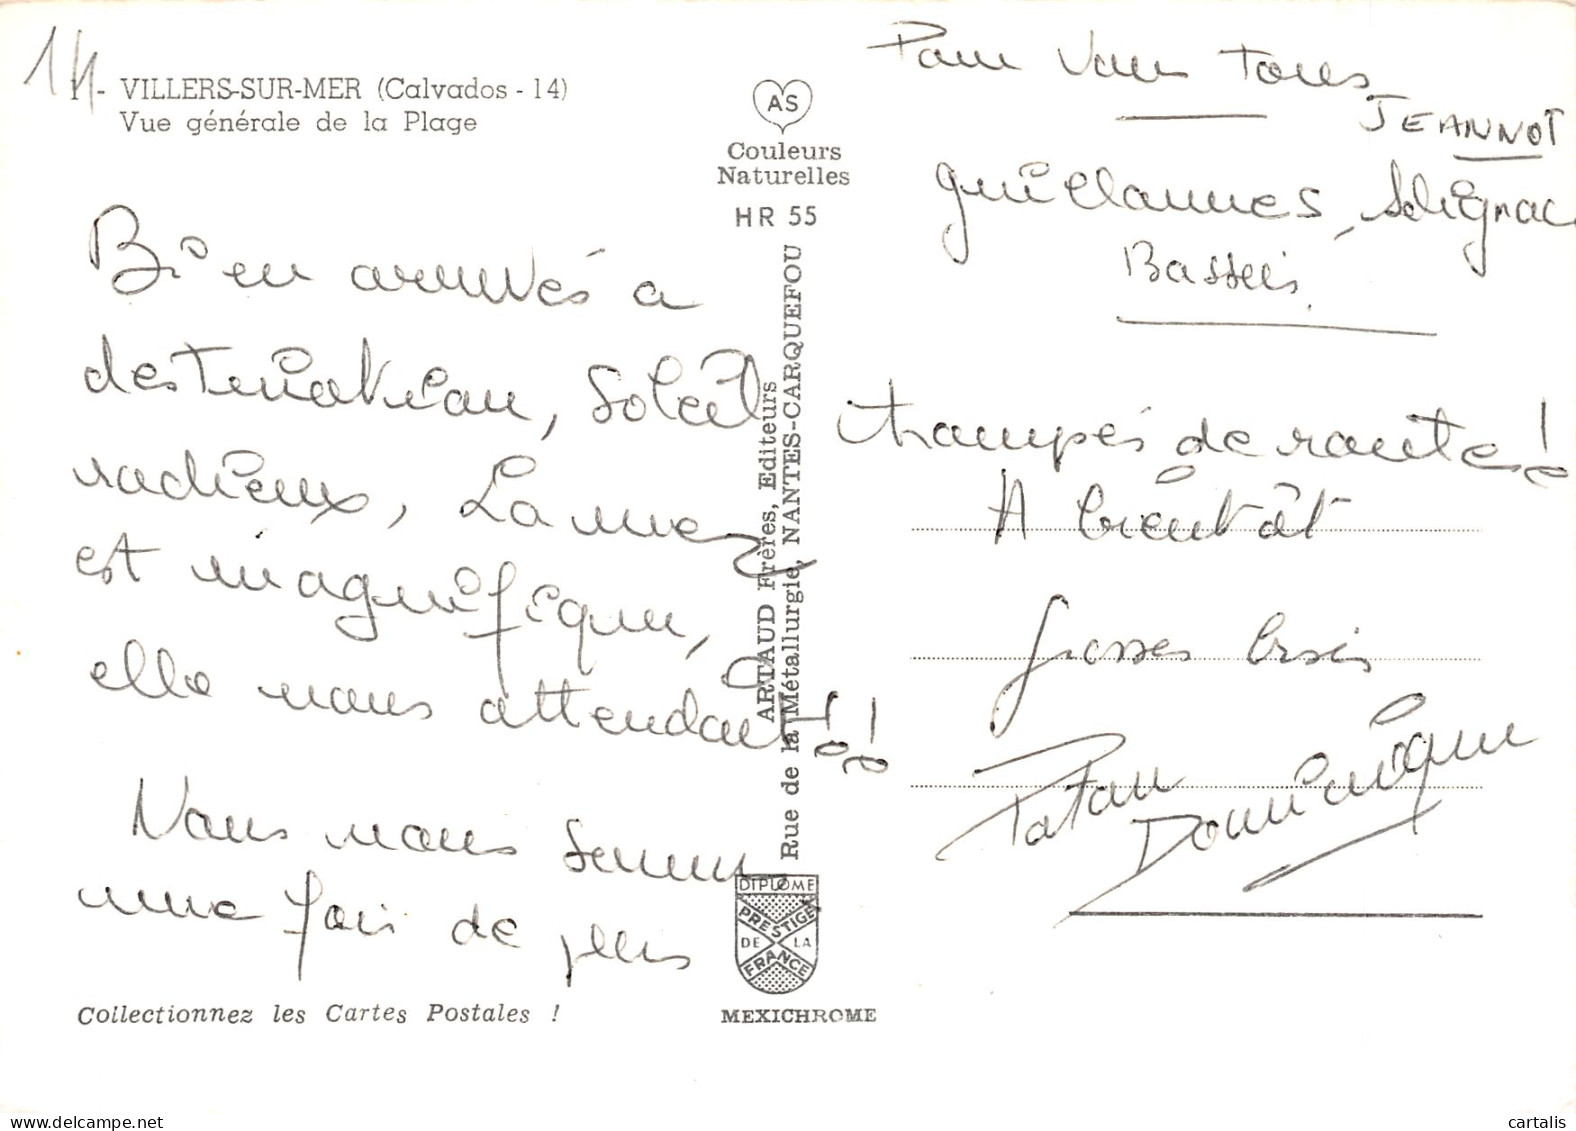 14
- VILLERS-SUR-MER (Calvados - 14)
Vue générale de la Plage
Bien arrivés à
destination, Soleil
radieux, La mer
est magnifique,
elle nous attendait !!
Nous nous sommes
une fois de plus
Collectionnez les Cartes Postales !
AS
Couleurs
Naturelles
HR 55
ARTAUD Frères, Editeurs
Rue de la Métallurgie, NANTES-CARQUEFOU
DIPLOME
PRESTIGE
DE LA
FRANCE
MEXICHROME
Pour Vous Tous
JEANNOT
Guillaumes, Solignac
trompés de route !
A bientôt
Grosses bises
Tatan
Dominique
www.delcampe.net
cartalis